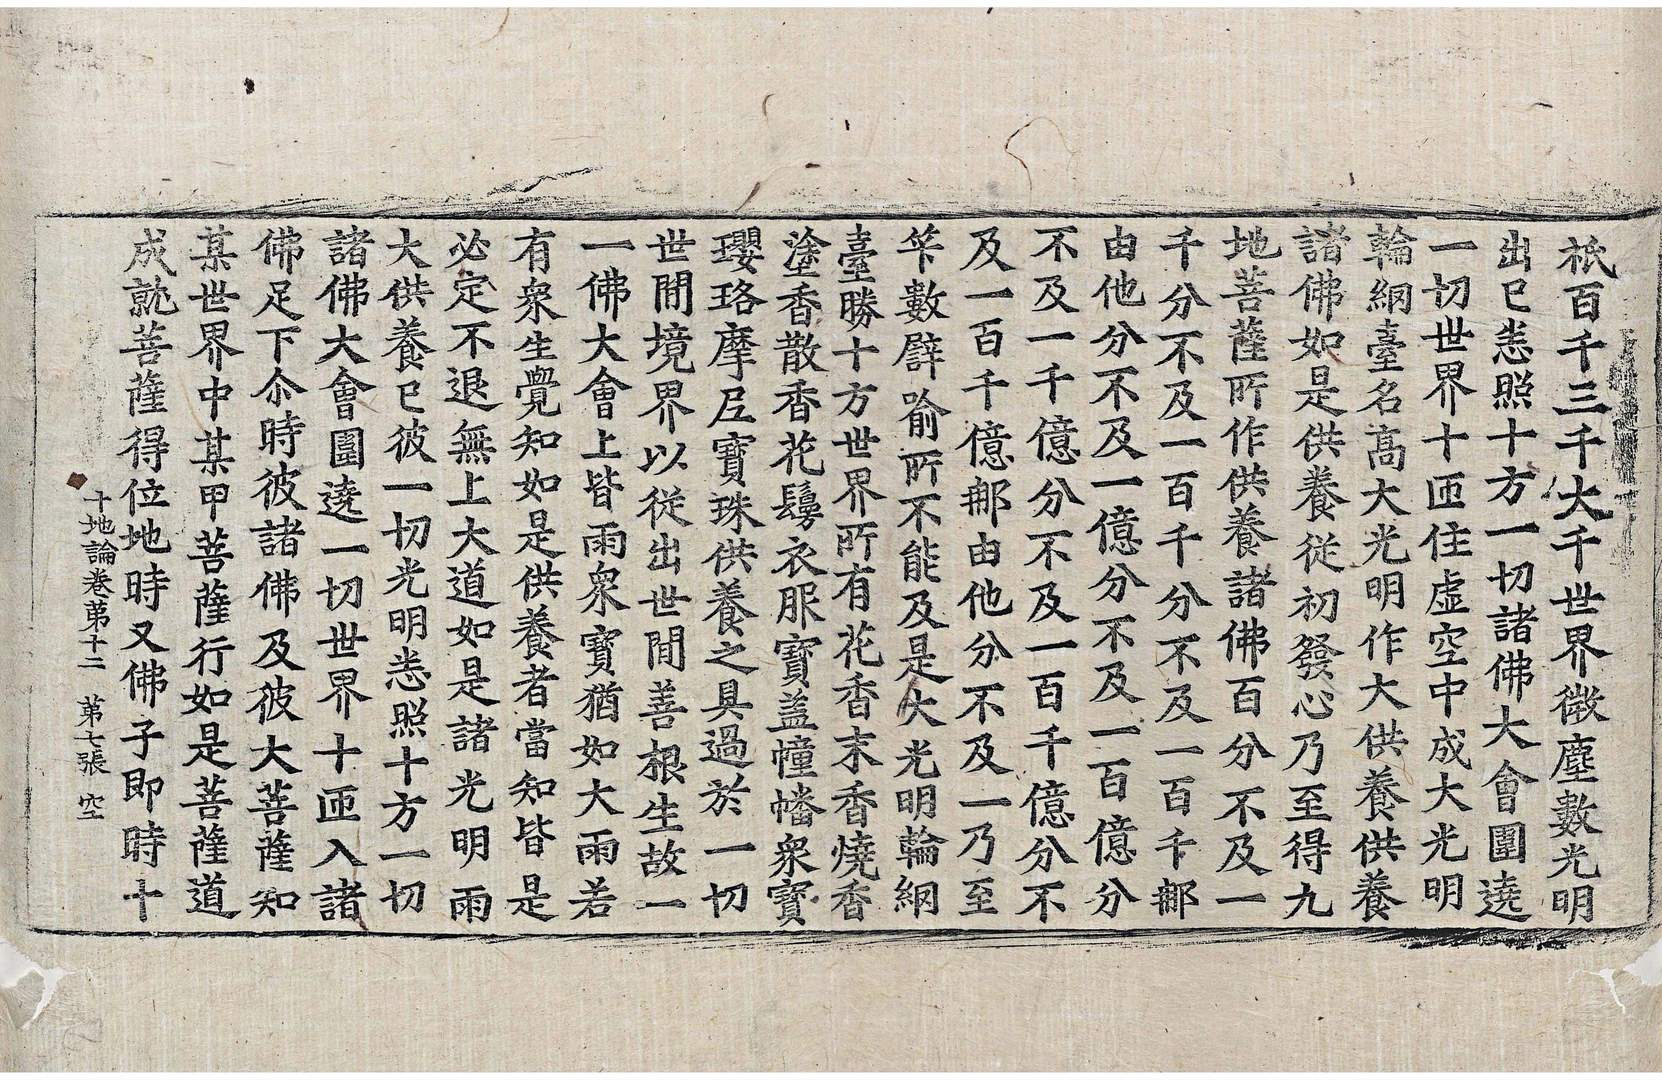 祇百千三千大千世界微塵數光明
出已悉照十方一切諸佛大會圍遶
一切世界十匝住虛空中成大光明
輪網臺名高大光明作大供養供養
諸佛如是供養從初發心乃至得九
地菩薩所作供養諸佛百分不及一
千分不及一百千分不及一百千那
由他分不及一億分不及一百億分
不及一千億分不及一百千億分不
及一百千億那由他分不及一乃至
筭數譬喻所不能及是大光明輪網
臺勝十方世界所有花香末香燒香
塗香散香花鬘衣服寶盖幢幡衆寶
瓔珞摩尼寶珠供養之具過於一切
世閒境界以從出世閒善根生故一
一佛大會上皆雨衆寶猶如大雨若
有衆生覺知如是供養者當知皆是
必定不退無上大道如是諸光明雨
大供養已彼一切光明悉照十方一切
諸佛大會圍遶一切世界十匝入諸
佛足下尒時彼諸佛及彼大菩薩知
某世界中某甲菩薩行如是菩薩道
成就菩薩得位地時又佛子即時十
十地論卷苐十二 苐七張 空